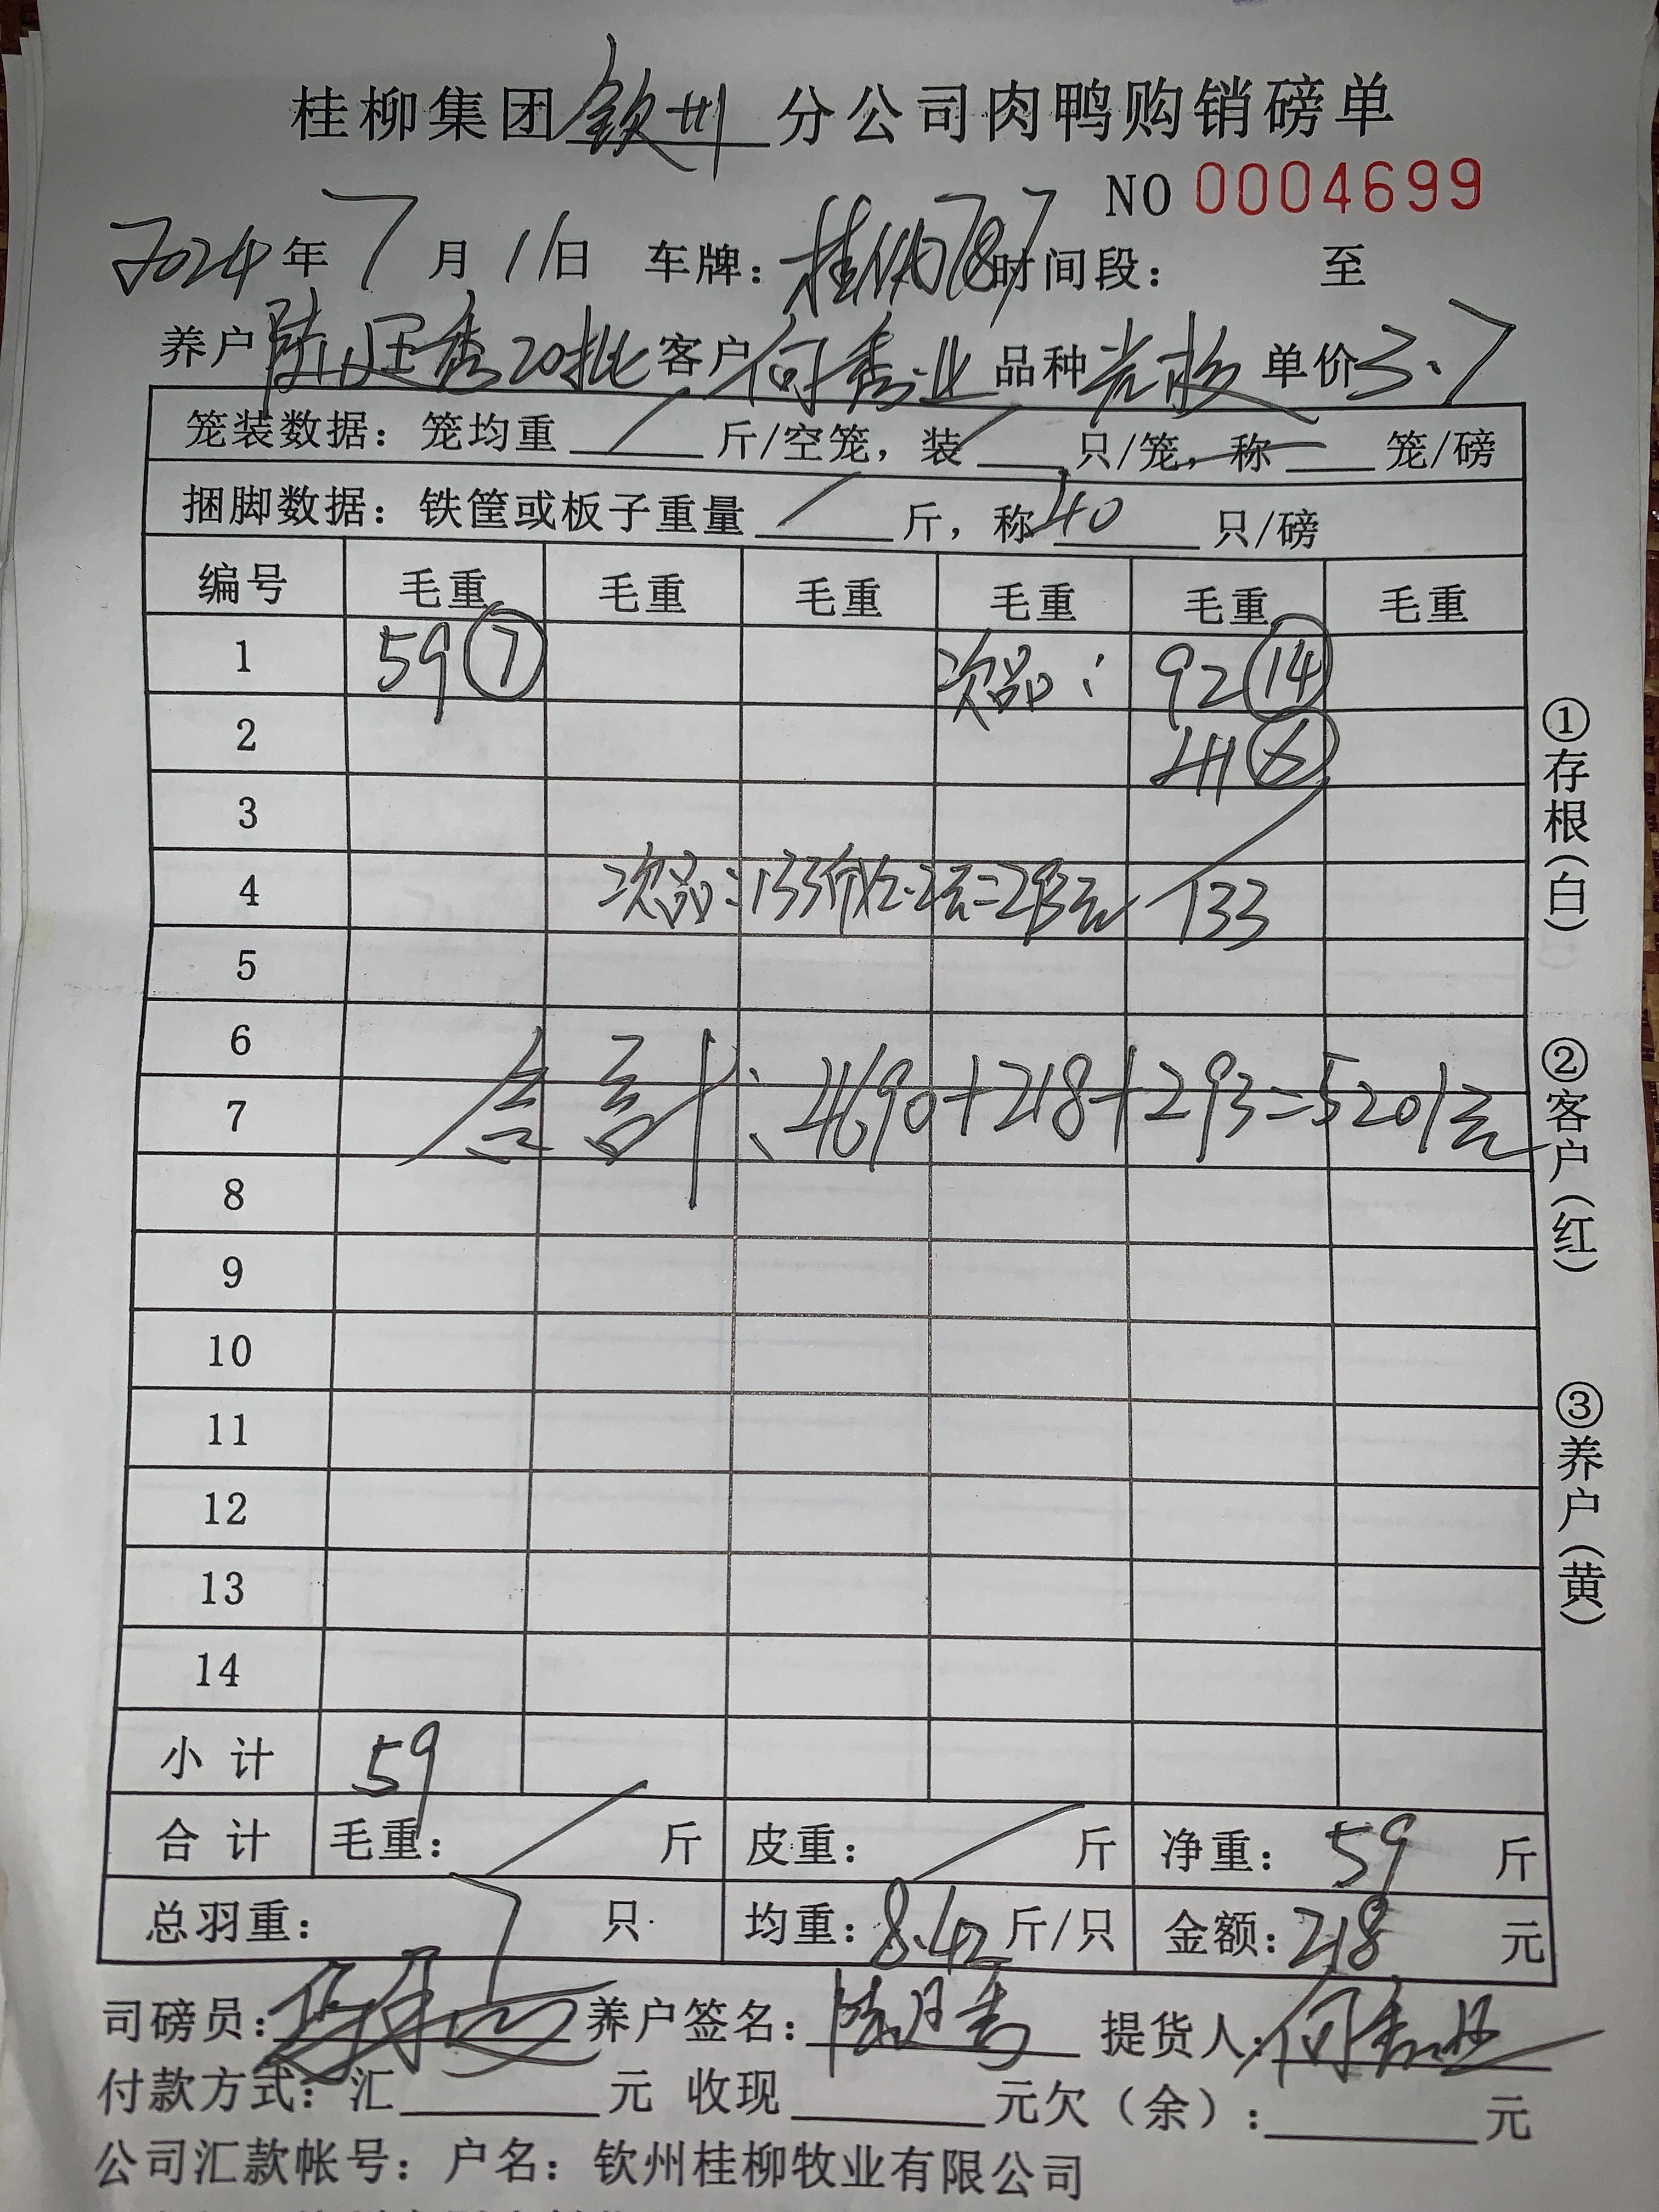 桂柳集团钦州分公司肉鸭购销磅单
NO 0004699
2024年7月11日 车牌：桂 787 时间段： 至
养户 陈 秀20批 客户 何秀业 品种 单价3.7
笼装数据：笼均重 / 斤/空笼，装 / 只/笼，称 — 笼/磅
捆脚数据：铁筐或板子重量 / 斤，称 40 只/磅
编号 毛重 毛重 毛重 毛重 毛重 毛重
1 59 ⑦ 次品： 92 ⑭
2 41 ⑥
3
4 次品：133斤×2.2元=293元 133
5
6
7 合计：4690+218+293=5201元
8
9
10
11
12
13
14
小计 59
合计 毛重： / 斤 皮重： / 斤 净重：59 斤
总羽重：7 只 均重：8.42 斤/只 金额：218 元
司磅员： 养户签名：陈 秀 提货人：何秀业
付款方式：汇 元 收现 元欠（余）： 元
公司汇款帐号：户名：钦州桂柳牧业有限公司
①存根（白）
②客户（红）
③养户（黄）